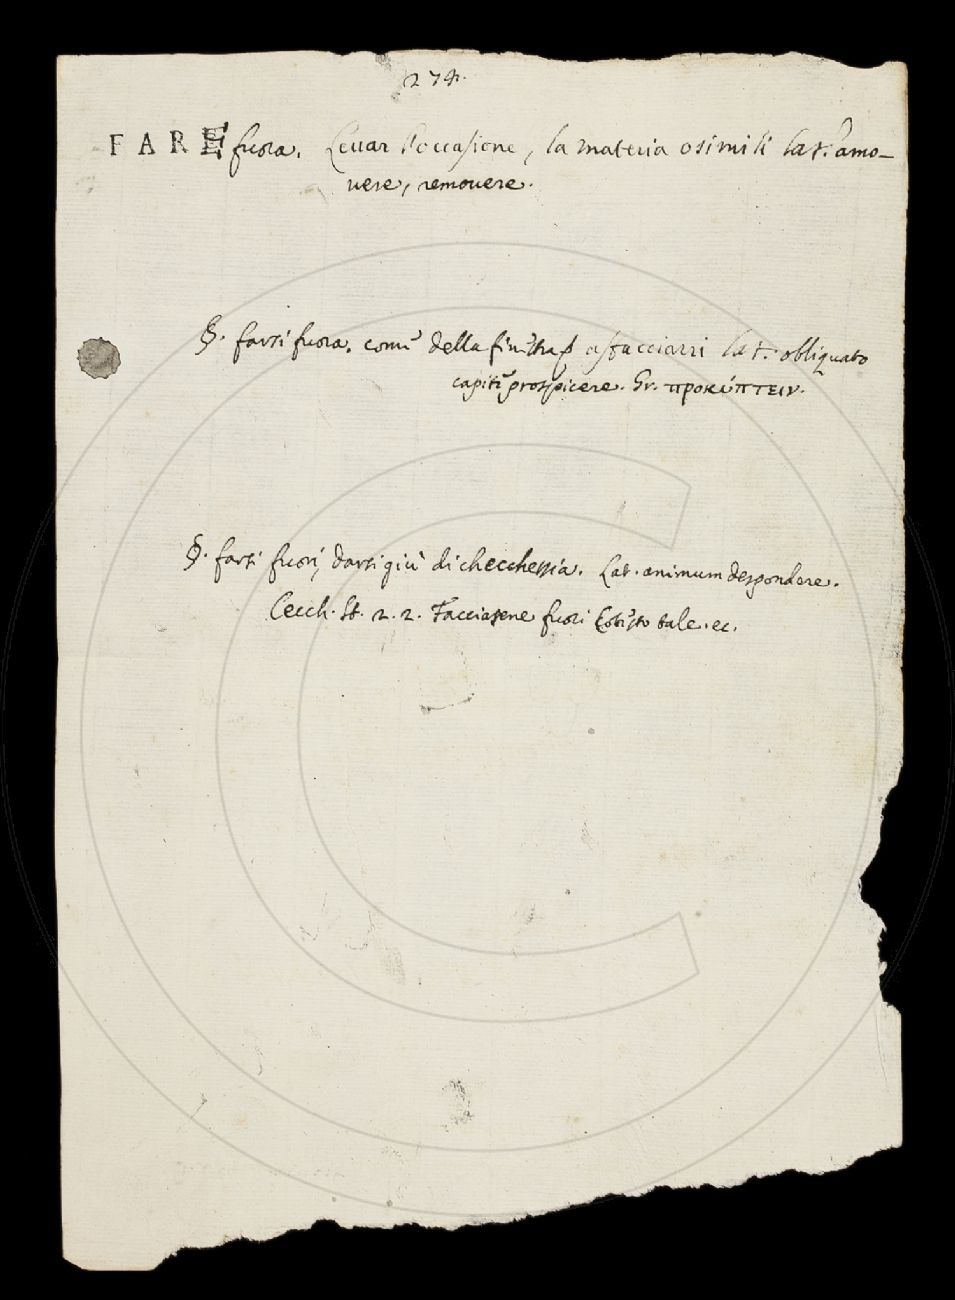 274.
FARE fuora. Levar l'occasione, la materia o simili lat. amo–
vere, removere.
§. farsi fuora. come della finestra p affacciarsi lat. obliquato
capite prospicere. Gr. προκύπτειν.
§. farsi fuori, darsi giù di checchessia. Lat. animum despondere.
Cecch. St. 2. 2. Facciasene fuori tale. ec.